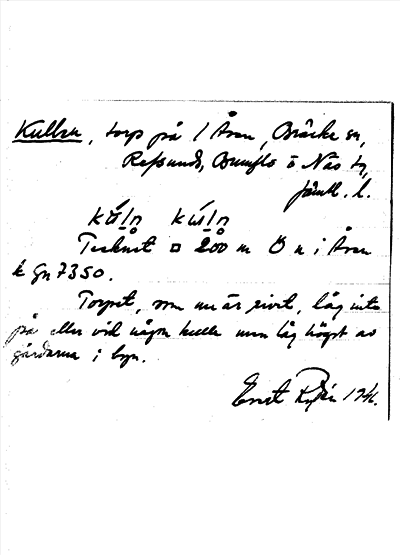 Kullen, torp på / Åsen, Bräcke sn,
Refsunds, Brunflo o Näs tg,
Jämtl. l.
kúln kúln
Tecknet □ 200 m Ö n i Åsen
k Gn 7350.
Torpet, som nu är rivet, låg inte
på eller vid någon kulle men låg högst av
gårdarna i byn.
Ernst 1941.